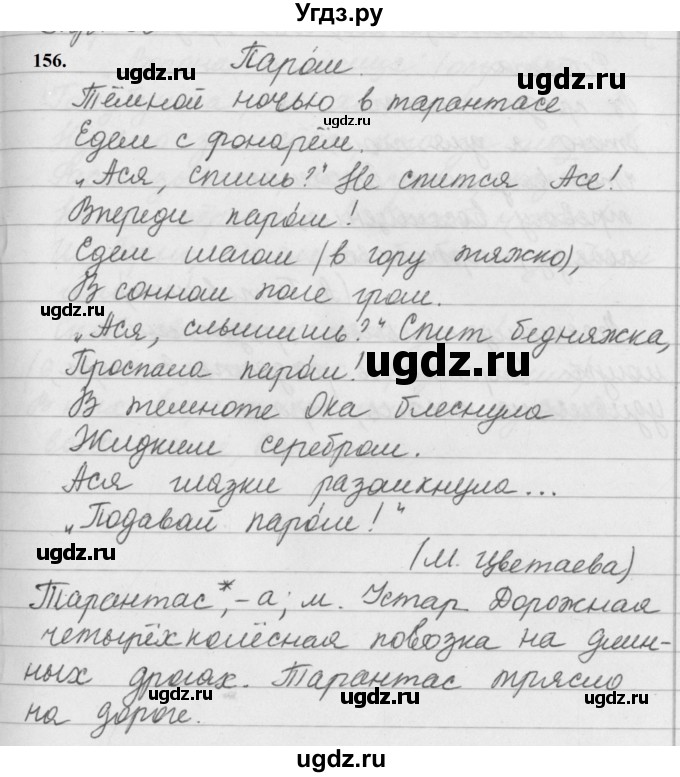 Угдз.ру
156.
Паро́м.
Тёмной ночью в тарантасе
Едем с фонарём.
„Ася, спишь?" Не спится Асе!
Впереди паро́м!
Едем шагом (в гору тяжко),
В сонном поле гром.
„Ася, слышишь?" Спит бедняжка,
Проспала паро́м!
В темноте Ока блеснула
Жидким серебром.
Ася глазки разомкнула...
„Подавай паро́м!"
(М. Цветаева)
Тарантас*, -а; м. Устар. Дорожная
четырёхколёсная повозка на длин-
ных дрогах. Тарантас трясло
на дороге.
ugdz.ru
ugdz.ru
ugdz.ru
ugdz.ru
ugdz.ru
ugdz.ru
ugdz.ru
ugdz.ru
ugdz.ru
ugdz.ru
ugdz.ru